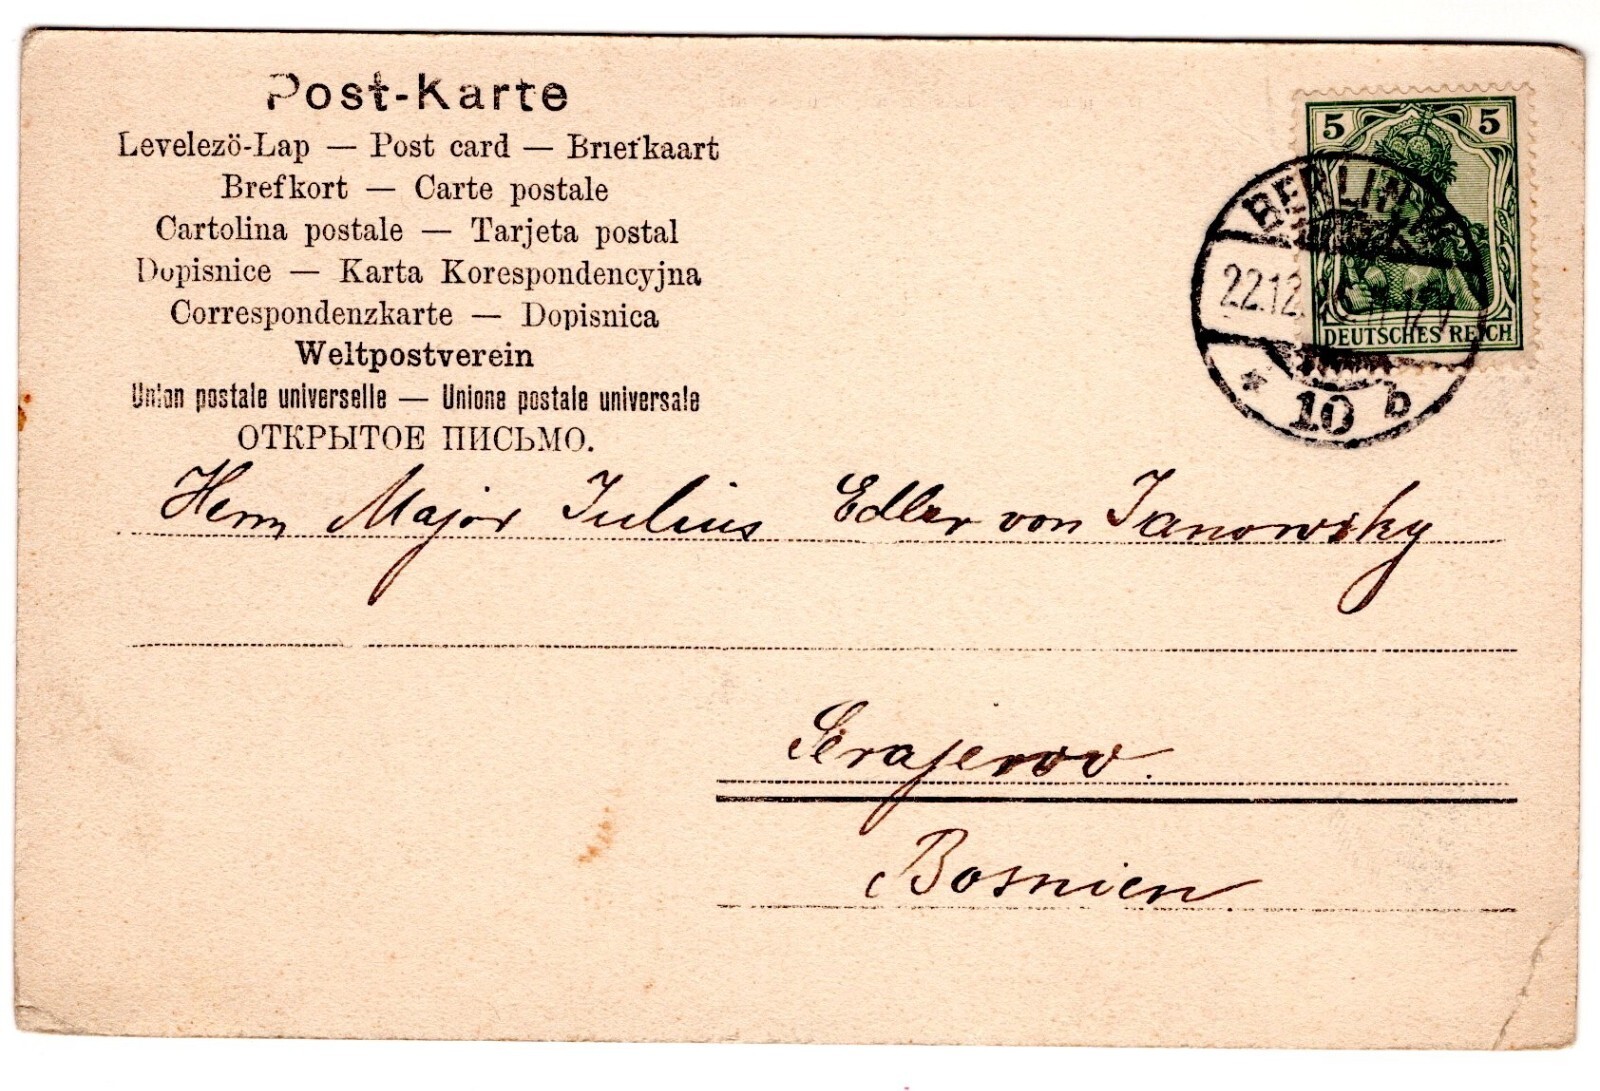 Post-Karte
Levelezö-Lap — Post card — Briefkaart
Brefkort — Carte postale
Cartolina postale — Tarjeta postal
Dopisnice — Karta Korespondencyjna
Correspondenzkarte — Dopisnica
Weltpostverein
Union postale universelle — Unione postale universale
ОТКРЫТОЕ ПИСЬМО.
5 5
DEUTSCHES REICH
BERLIN
22.12.
* 10 b
Herrn Major Julius Edler von Janowsky
Serajewo.
Bosnien